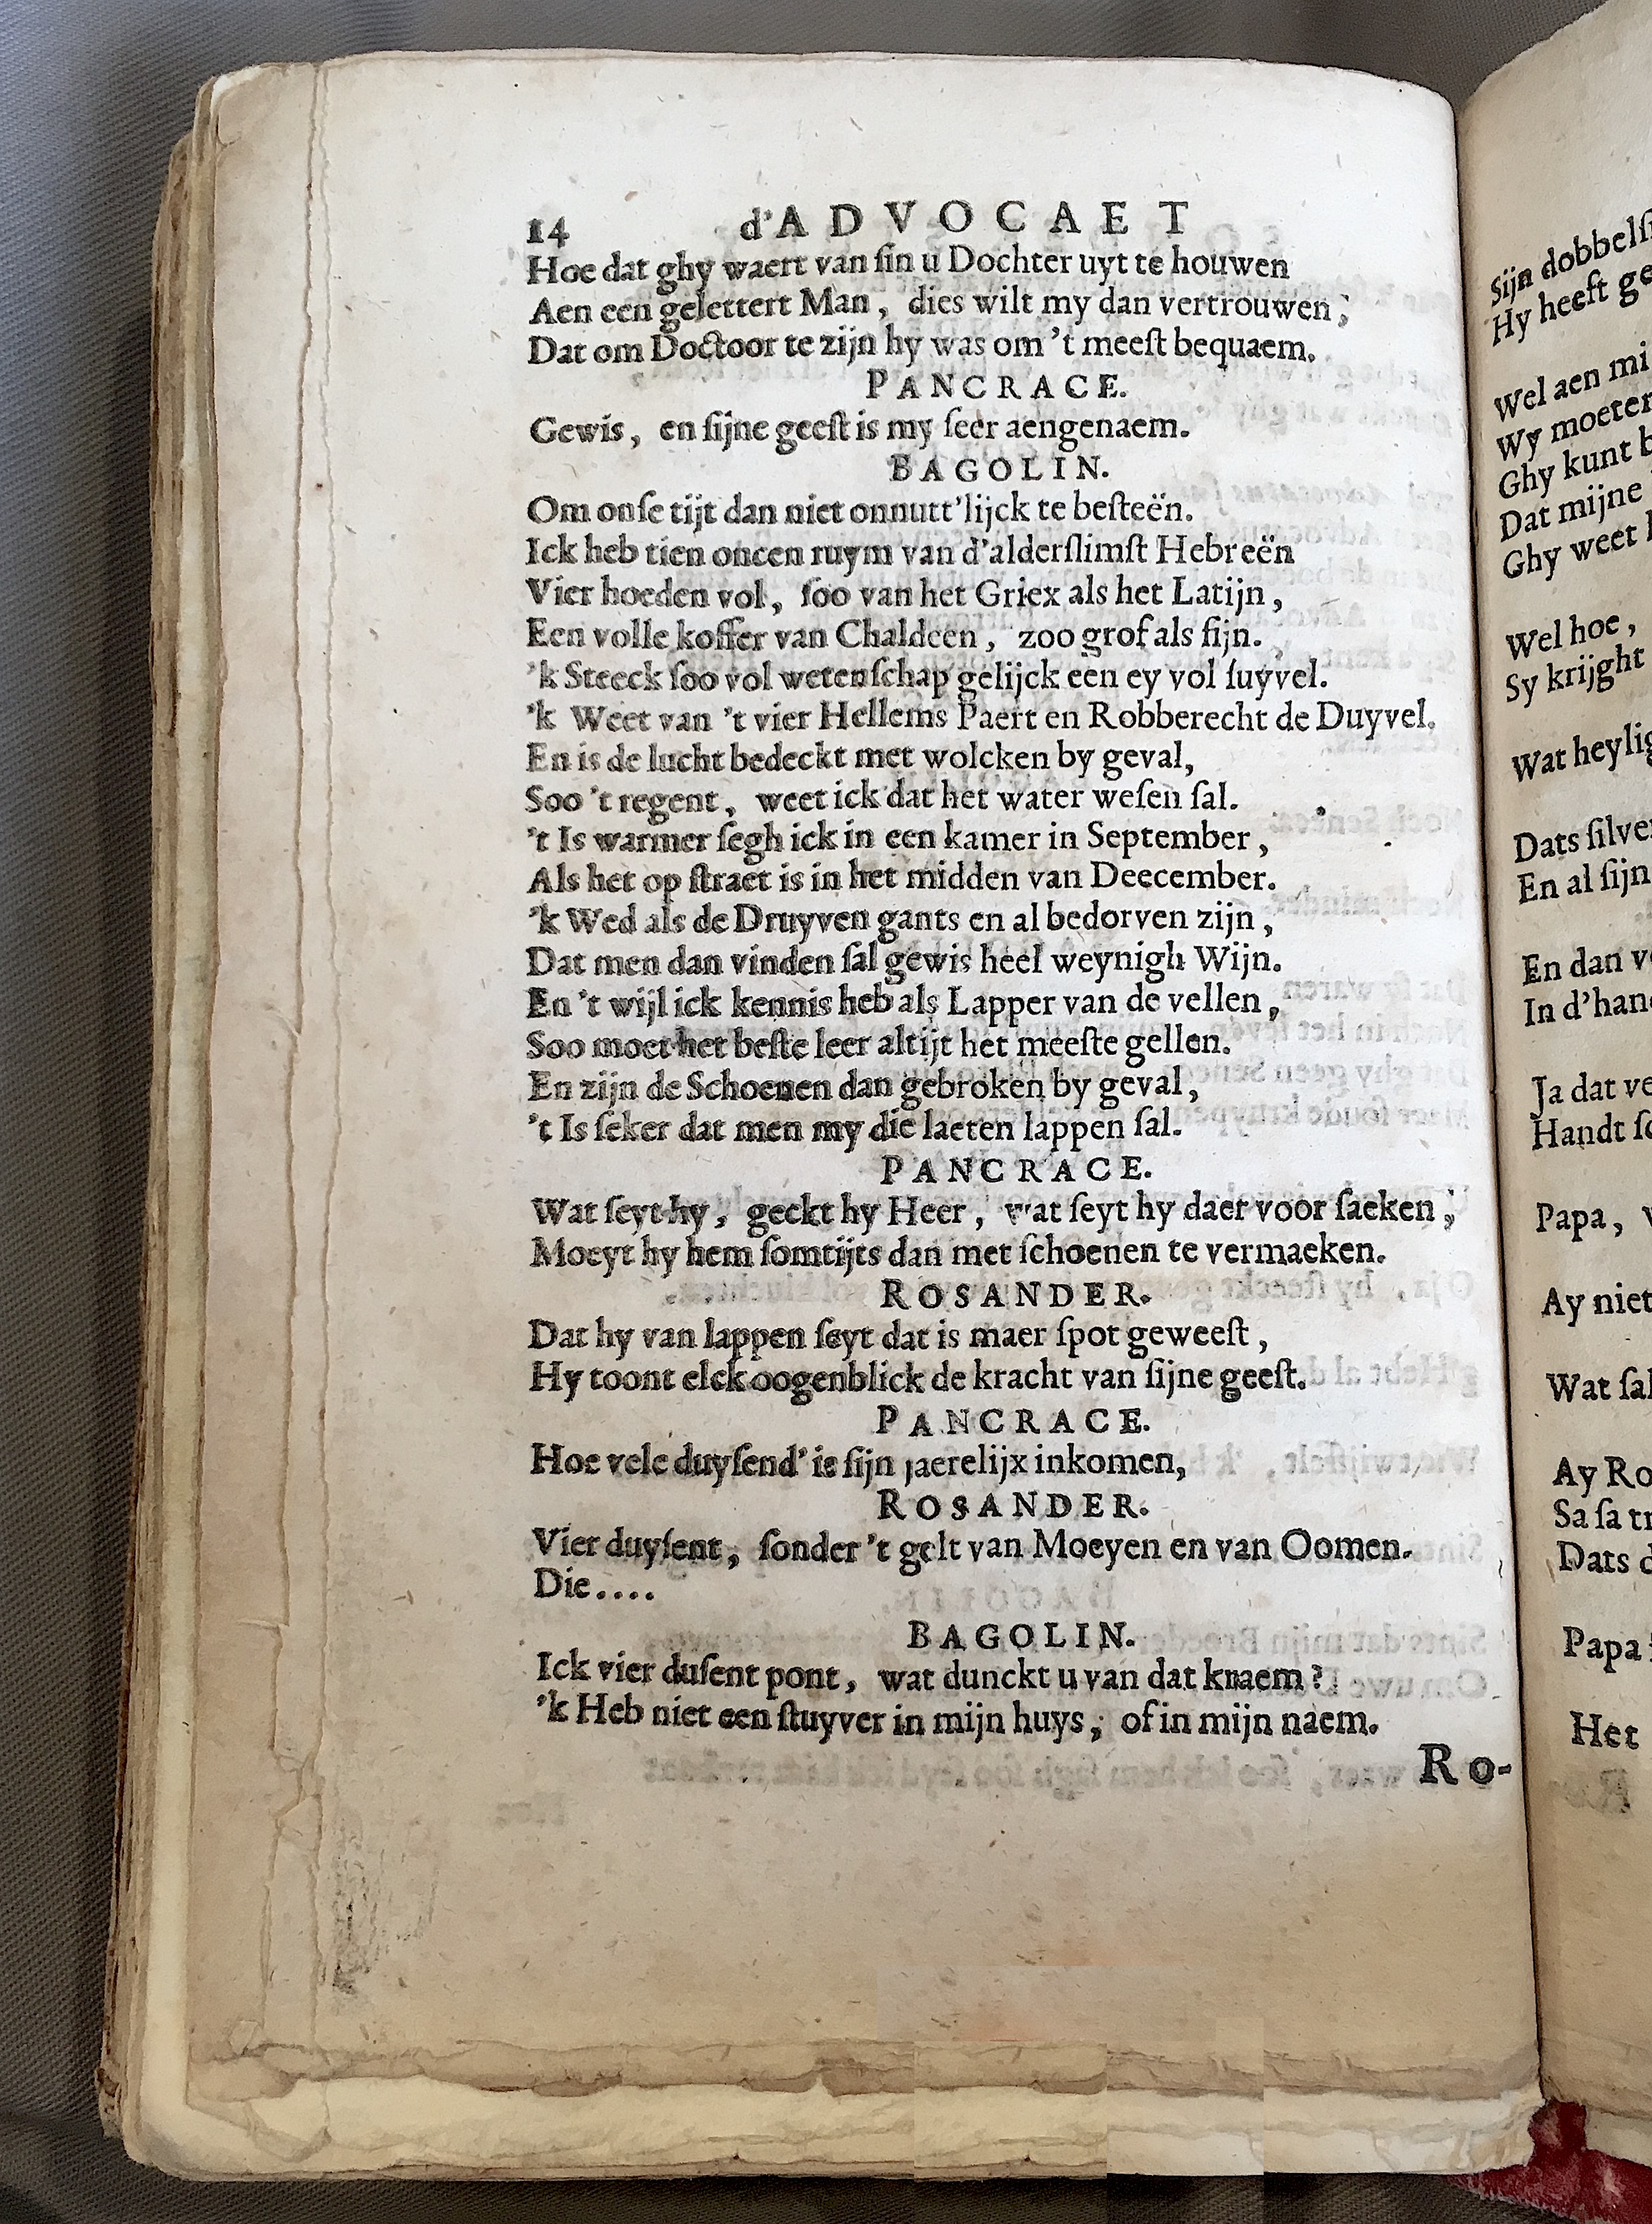 14 d'ADVOCAET
Hoe dat ghy waert van ſin u Dochter uyt te houwen
Aen een gelettert Man, dies wilt my dan vertrouwen;
Dat om Doctoor te zijn hy was om 't meeſt bequaem.
PANCRACE.
Gewis, en ſijne geeſt is my ſeer aengenaem.
BAGOLIN.
Om onſe tijt dan niet onnutt'lijck te beſteën.
Ick heb tien oncen ruym van d'alderſlimſt Hebreën
Vier hoeden vol, ſoo van het Griex als het Latijn,
Een volle koffer van Chaldeen, zoo grof als fijn.
'k Steeck ſoo vol wetenſchap gelijck een ey vol ſuyvel.
'k Weet van 't vier Hellems Paert en Robberecht de Duyvel.
En is de lucht bedeckt met wolcken by geval,
Soo 't regent, weet ick dat het water weſen ſal.
't Is warmer ſegh ick in een kamer in September,
Als het op ſtraet is in het midden van Deecember.
'k Wed als de Druyven gants en al bedorven zijn,
Dat men dan vinden ſal gewis heel weynigh Wijn.
En 't wijl ick kennis heb als Lapper van de vellen,
Soo moet het beſte leer altijt het meeſte gellen.
En zijn de Schoenen dan gebroken by geval,
't Is ſeker dat men my die laeten lappen ſal.
PANCRACE.
Wat ſeyt hy, geckt hy Heer, wat ſeyt hy daer voor ſaeken;
Moeyt hy hem ſomtijts dan met ſchoenen te vermaeken.
ROSANDER.
Dat hy van lappen ſeyt dat is maer ſpot geweeſt,
Hy toont elck oogenblick de kracht van ſijne geeſt.
PANCRACE.
Hoe vele duyſend' is ſijn jaerelijx inkomen,
ROSANDER.
Vier duyſent, ſonder 't gelt van Moeyen en van Oomen.
Die....
BAGOLIN.
Ick vier duſent pont, wat dunckt u van dat kraem?
'k Heb niet een ſtuyver in mijn huys, of in mijn naem.
Ro-
Sijn
Hy heeft
Wel aen
Wy
Ghy kunt
Dat mijne
Ghy weet
Wel hoe,
Sy krijght
Wat
Dats
En al ſijn
En dan
In
Ja dat
Handt
Papa,
Ay niet
Wat
Ay
Sa ſa
Dats
Papa
Het